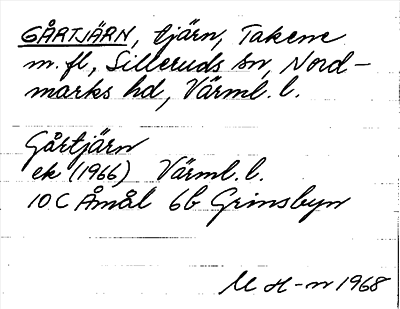 GÅRTJÄRN, tjärn, Takene
m.fl, Silleruds sn, Nord-
marks hd, Värml. l.
Gårtjärn
ek (1966) Värml. l.
10C Åmål 6b Grinsbyn
M H-n 1968